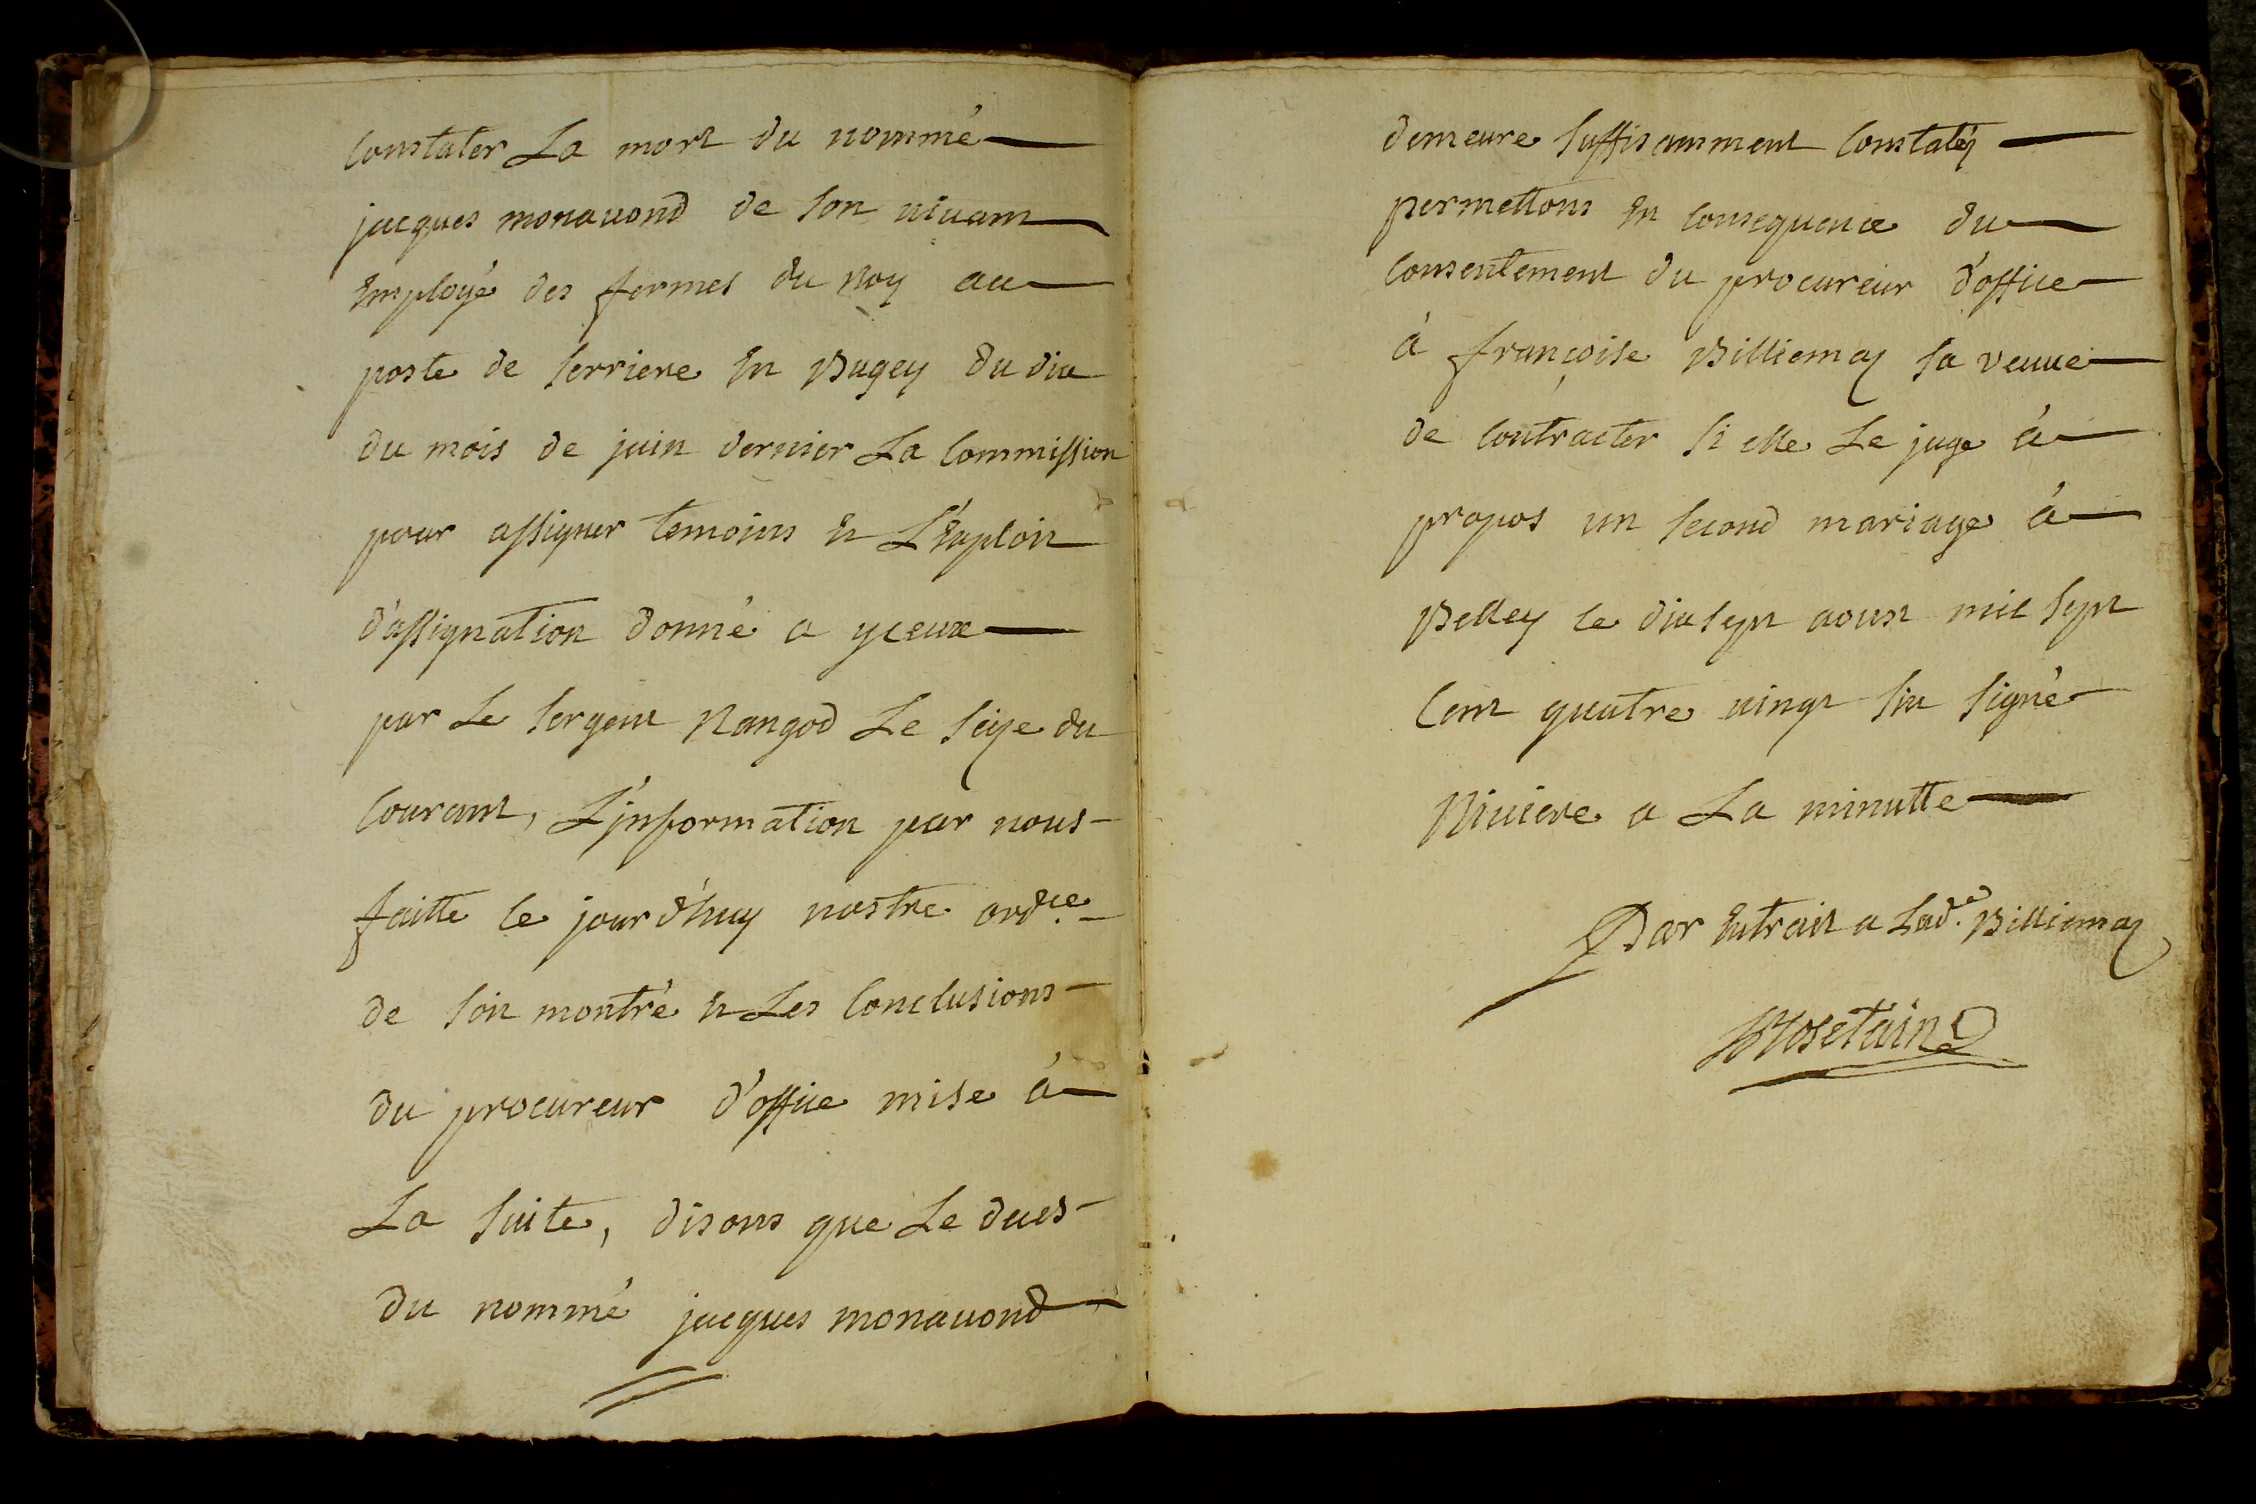 constater La mort du nommé
jacques monavond de son vivant
Employé des fermes du Roy au
poste de serriere En Bugey du dix
du mois de juin dernier La Commission
pour assigner temoins Et L'Exploit
d'assignation donné a yceux
par Le sergent Rangod Le seize du
Courant, L'jnformation par nous
faitte ce jourd'huy nostre ord.ce
de soit montré Et Les Conclusions
du procureur d'office mise à
La suite, disons que Le deces
du nommé jacques monavond
demeure suffisamment Constaté,
permettons En consequence du
Consentement du procureur d'office
à françoise Billiemaz sa veuve
de contracter si elle Le juge à
propos un second mariage à
Belley le dix sept aoust mil sept
Cent quatre vingt six signé
Riviere a La minutte
Par Extrait a Lad.e Billiemaz